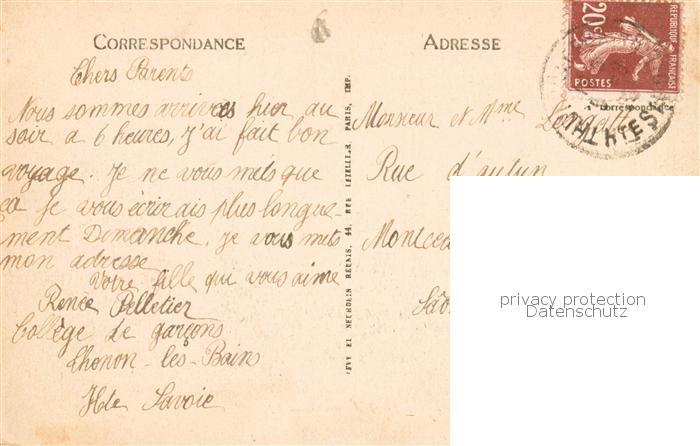 CORRESPONDANCE
Chers Parents
Nous sommes arrivées hier au
soir a 6 heures, j'ai fait bon
voyage. Je ne vous mets que
ça je vous écrirais plus longue-
ment Dimanche. je vous mets
mon adresse
Votre fille qui vous aime
Renée Pelletier
Collège de garçons
Thonon-les-Bains
Hte Savoie
LEVY ET NEURDEIN RÉUNIS, 44, RUE LETELLIER, PARIS, IMP.
ADRESSE
20c
POSTES
RÉPUBLIQUE FRANÇAISE
correspondance
Monsieur et Mme
Rue d'autun
Montcea
Saô
privacy protection
Datenschutz